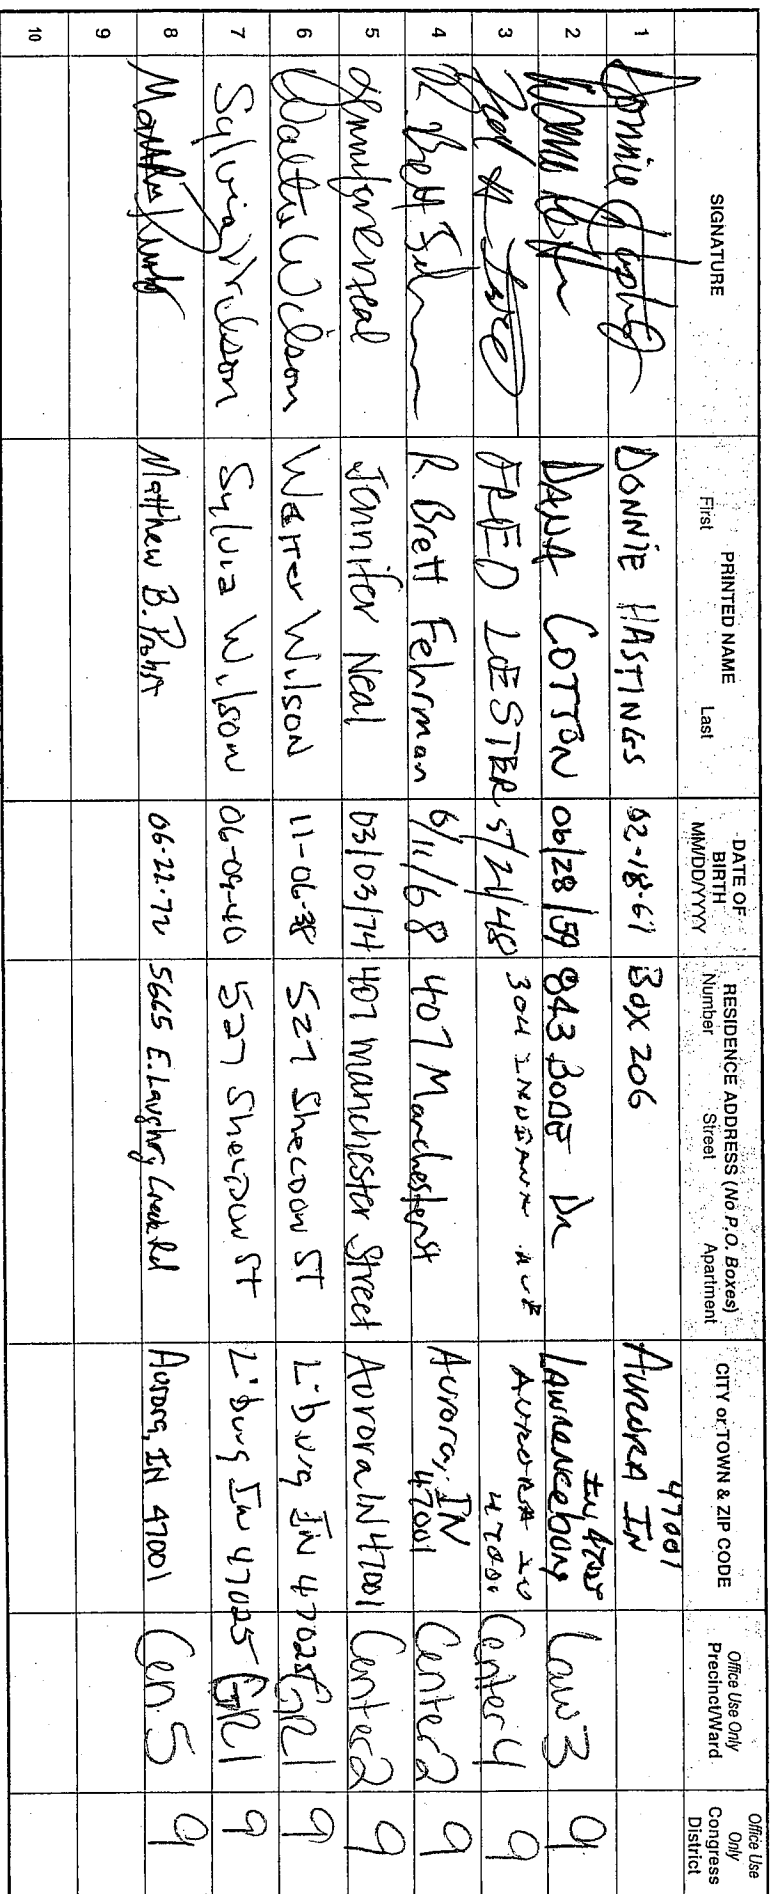 SIGNATURE
PRINTED NAME
First Last
DATE OF BIRTH
MM/DD/YYYY
RESIDENCE ADDRESS (No P.O. Boxes)
Number Street Apartment
CITY or TOWN & ZIP CODE
Office Use Only
Precinct/Ward
Office Use Only
Congress District
1 DONNIE HASTINGS 02-18-61 Box 206 AURORA IN 47001
2 DANA COTTON 06/28/59 843 BODE DR Lawrenceburg Law 3 9
3 FRED LESTER 5/21/48 304 INDIANA AVE AURORA IN 47001 Center 4 9
4 R. Brett Fehrman R. Brett Fehrman 6/11/68 407 Manchester St Aurora, IN 47001 Center 2 9
5 Jennifer Neal Jennifer Neal 03/03/74 407 Manchester Street Aurora IN 47001 Center 2 9
6 Walter Wilson Walter Wilson 11-06-38 527 Sheldon ST L'burg IN 47025 GR1 9
7 Sylvia Wilson Sylvia Wilson 06-09-40 527 Sheldon St L'burg In 47025 GR1 9
8 Matthew B. Probst 06-22-72 5665 E. Laughery Creek Rd Aurora, IN 47001 Cen. 5 9
9
10